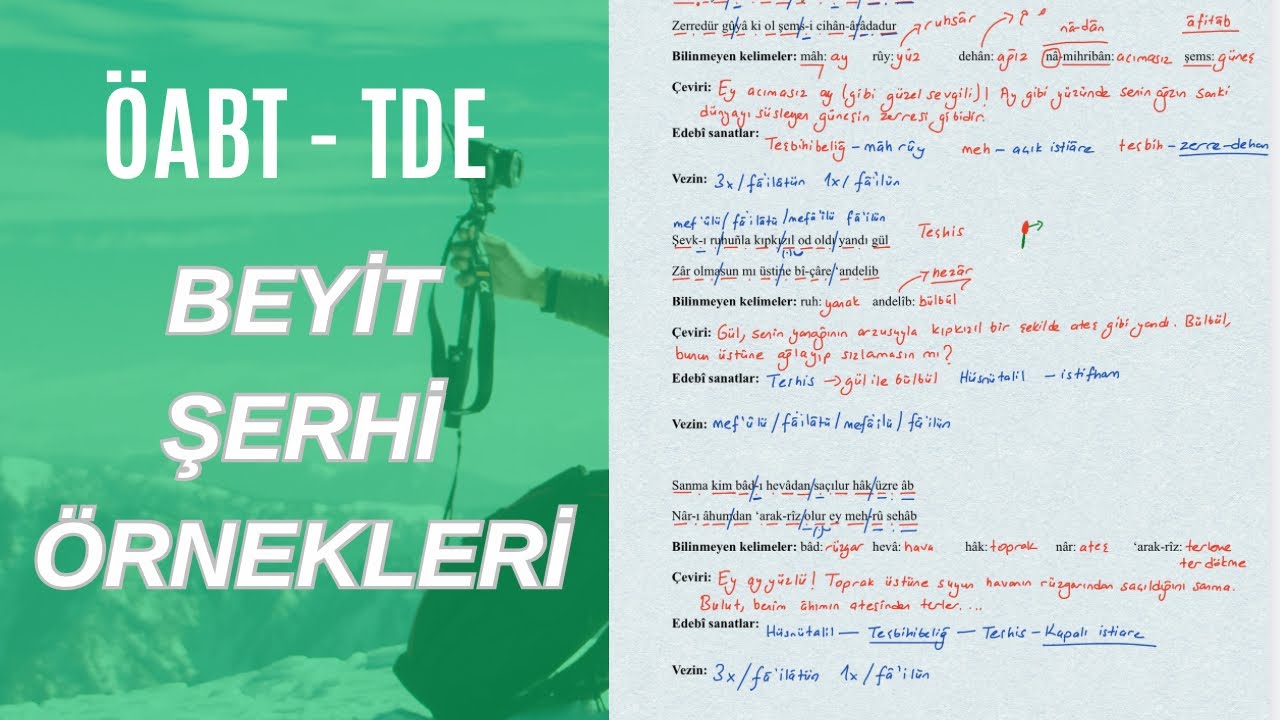 ÖABT - TDE
BEYİT
ŞERHİ
ÖRNEKLERİ
Zerredür gûyâ ki ol şems-i cihân-ârâdadur
ruhsâr
nâ-dân
âfitâb
Bilinmeyen kelimeler: mâh: ay rûy: yüz dehân: ağız nâ-mihribân: acımasız şems: güneş
Çeviri: Ey acımasız ay (gibi güzel sevgili)! Ay gibi yüzünde senin ağzın sanki
dünyayı süsleyen güneşin zerresi gibidir.
Edebî sanatlar:
Teşbihibeliğ - mâh rûy meh - açık istiâre teşbih - zerre-dehan
Vezin: 3x/fâ'ilâtün 1x/fâ'ilün
mef'ûlü/fâ'ilâtü/mefâ'îlü fâ'ilün
Şevk-ı ruhuñla kıpkızıl od oldı yandı gül Teşhis
Zâr olmasun mı üstine bî-çâre 'andelîb
hezâr
Bilinmeyen kelimeler: ruh: yanak andelîb: bülbül
Çeviri: Gül, senin yanağının arzusuyla kıpkızıl bir şekilde ateş gibi yandı. Bülbül,
bunun üstüne ağlayıp sızlamasın mı?
Edebî sanatlar: Teşhis → gül ile bülbül Hüsnütalil - istifham
Vezin: mef'ûlü/fâ'ilâtü/mefâ'îlü/fâ'ilün
Sanma kim bâd-ı hevâdan saçılur hâk üzre âb
Nâr-ı âhumdan 'arak-rîz olur ey meh-rû sehâb
Bilinmeyen kelimeler: bâd: rüzgar hevâ: hava hâk: toprak nâr: ateş 'arak-rîz: terleme
ter dökme
Çeviri: Ey ay yüzlü! Toprak üstüne suyun havanın rüzgarından saçıldığını sanma.
Bulut, benim âhımın ateşinden terler....
Edebî sanatlar:
Hüsnütalil - Teşbihibeliğ - Teşhis - Kapalı istiare
Vezin: 3x/fâ'ilâtün 1x/fâ'ilün